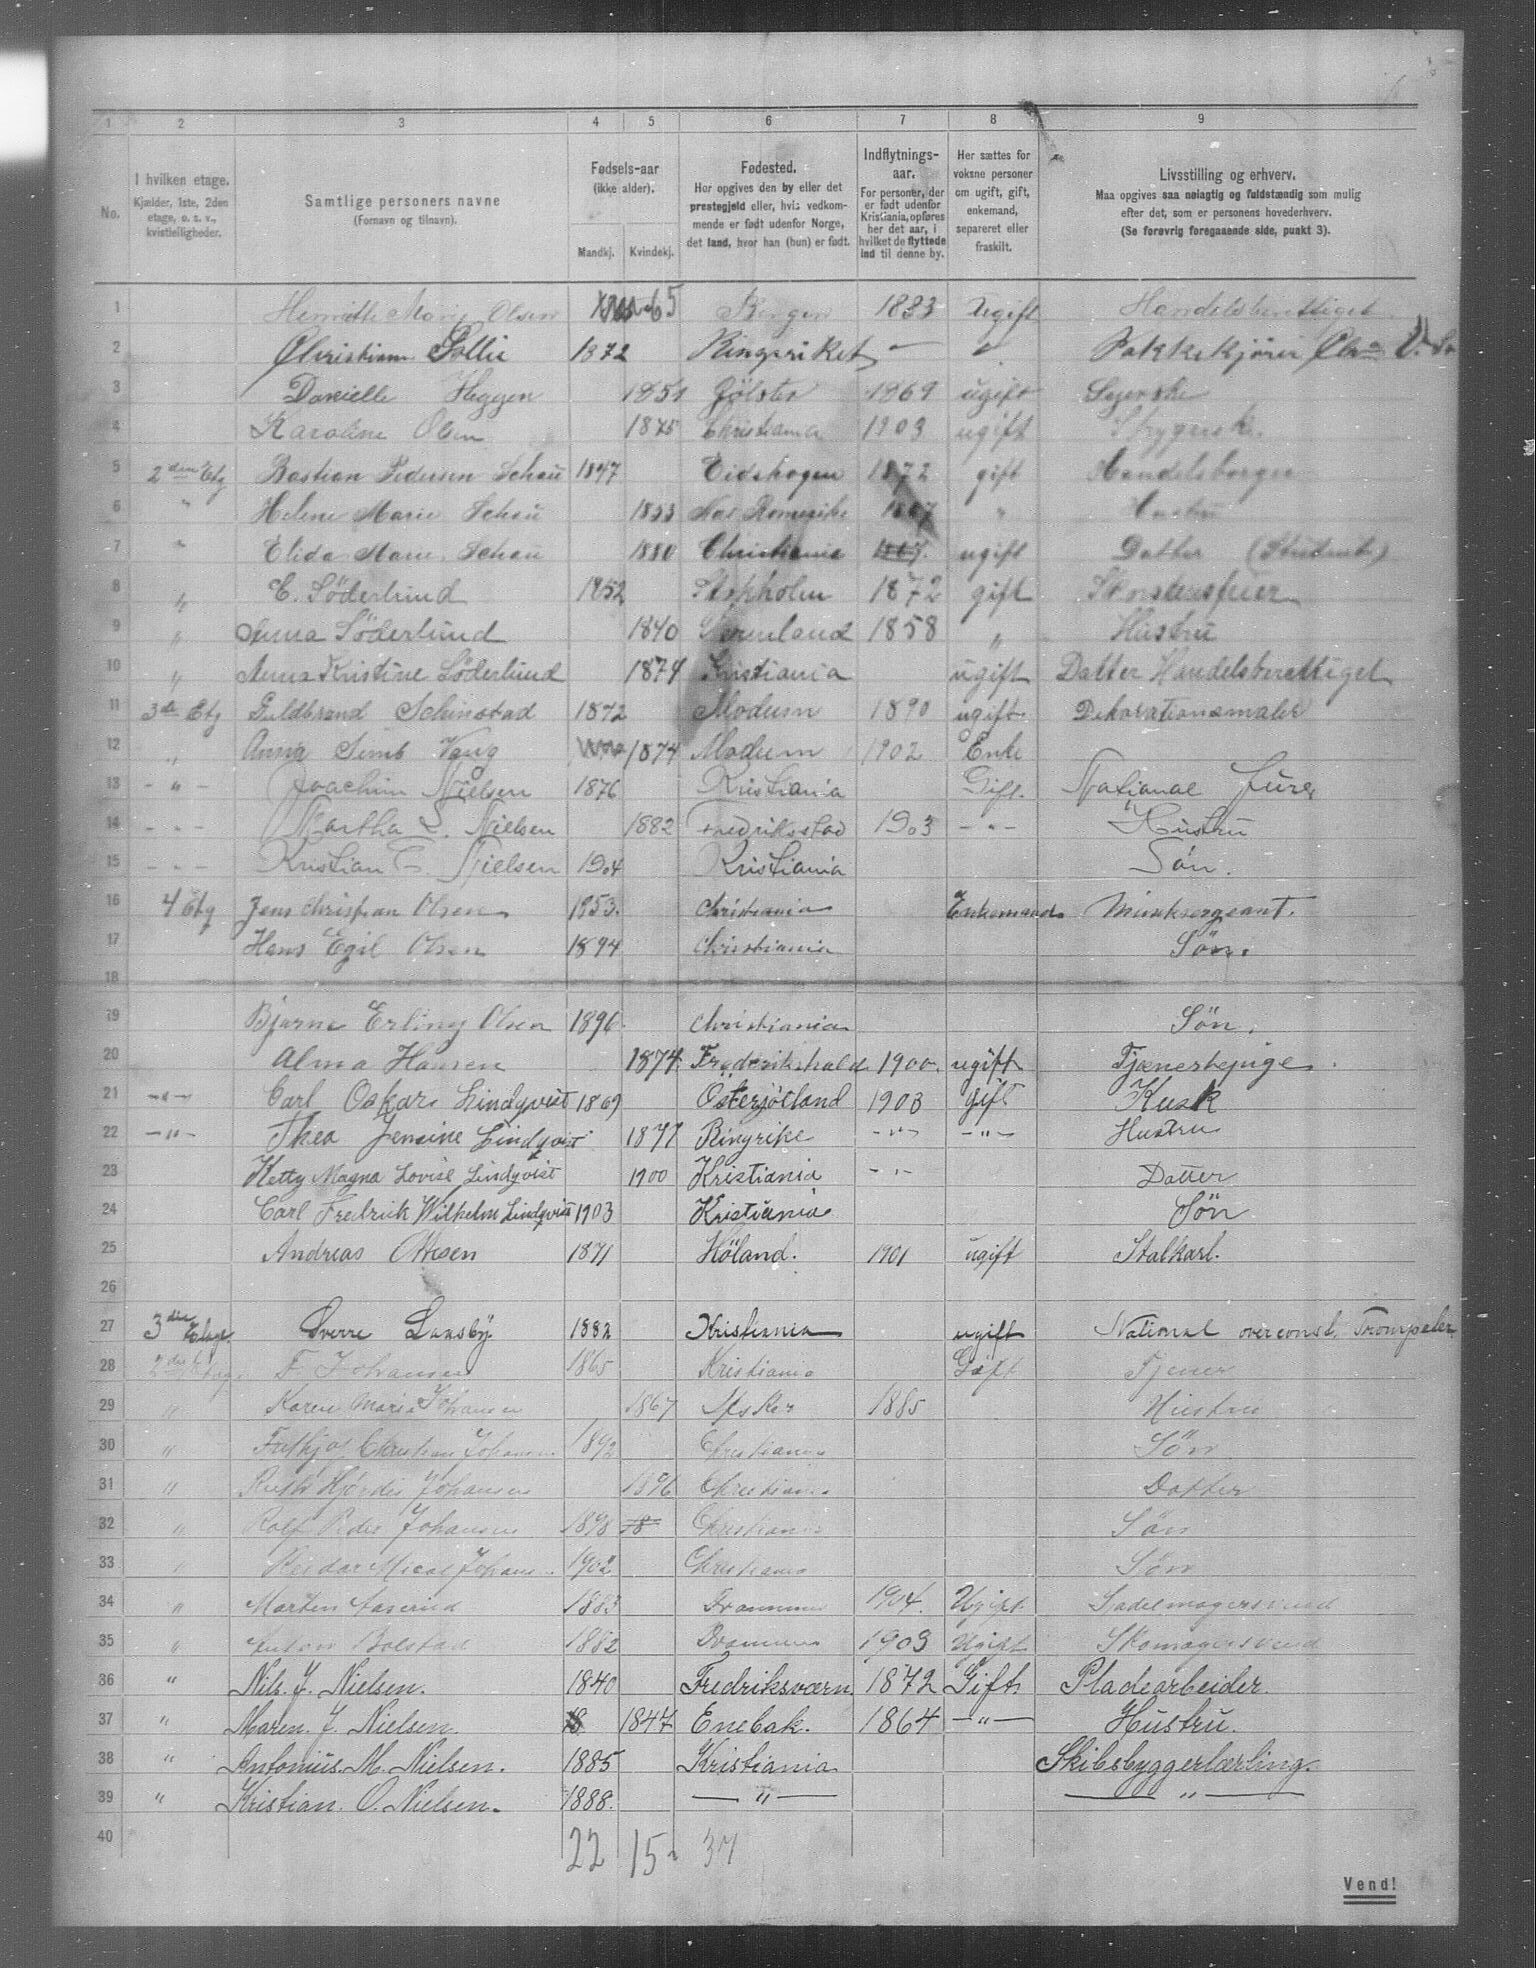 1 2 3 4 5 6 7 8 9
No.
I hvilken etage.
Kjælder, 1ste, 2den
etage, o. s. v.,
kvistleiligheder.
Samtlige personers navne
(Fornavn og tilnavn).
Fødsels-aar
(ikke alder).
Mandkj. Kvindekj.
Fødested.
Her opgives den by eller det
prestegjeld eller, hvis vedkom-
mende er født udenfor Norge,
det land, hvor han (hun) er født.
Indflytnings-
aar.
For personer, der
er født udenfor
Kristiania, opføres
her det aar, i
hvilket de flyttede
ind til denne by.
Her sættes for
voksne personer
om ugift, gift,
enkemand,
separeret eller
fraskilt.
Livsstilling og erhverv.
Maa opgives saa nøiagtig og fuldstændig som mulig
efter det, som er personens hovederhverv.
(Se forøvrig foregaaende side, punkt 3).
1 Henriette Marie Olsen 65 Bergen 1883 Ugift Handelsberettiget
2 Christian Sollie 1872 Ringeriket Pakkekjører
3 Danielle Heggen 1851 Jölster 1869 ugift Syerske
4 Karoline Olsen 1875 Christiania 1903 ugift Strygerske
5 2den Etg Bastian Pedersen Schau 1847 Eidskogen 1872 gift Handelsborger
6 " Helene Marie Schau 1853 Romerike 1867 " Hustru
7 " Elida Marie Schau 1880 Christiania 1867. ugift Datter (Studente)
8 " E. Söderlund 1852 Stokholm 1872 gift Skorstensfeier
9 " Anna Söderlund 1840 Vermland 1858 " Hustru
10 " Anna Kristine Söderlund 1874 Kristiania ugift Datter Handelsberettiget
11 3de Etg Guldbrand Schinstad 1872 Modum 1890 ugift Dekorationsmaler
12 " Anna Simb Vang 1874 Modum 1902 Enke
13 - " - Joachim Nielsen 1876 Kristiania Gift.
14 - " - Martha L. Nielsen 1882 Fredriksstad 1903 - " - Hustru
15 - " - Kristian C. Nielsen 1904 Kristiania Søn.
16 4 Etg Jens Christian Olsen 1853. Christiania Enkemand Musiksergeant.
17 Hans Egil Olsen 1894 Christiania Sön.
18
19 Bjarne Erling Olsen 1896 Christiania Sön.
20 Alma Hansen 1874. Frederikshald 1900. ugift Tjænerstepige.
21 - " - Carl Oskar Lindqvist 1869 Österjötland 1903 gift Kusk
22 - " - Thea Jensine Lindqvist 1877 Ringrike - " - - " - Hustru
23 Hetty Magna Lovise Lindqvist 1900 Kristiania - " - Datter
24 Carl Fredrick Wilhelm Lindqvist 1903 Kristiania Sön
25 Andreas Ottesen 1871 Höland. 1901 ugift Stalkarl.
26
27 3die Etage. Sverre Lansby 1882 Kristiania ugift National overconst. Trompeter
28 2den Etage F. Johansen 1865 Kristiania Gift Tjener
29 " Karen Maria Johansen 1867 Asker 1885 Hustru
30 " Frithjof Christian Johansen 1892 Christiania Sön
31 " Ruth Hjørdis Johansen 1896 Christiania Datter
32 " Rolf Peder Johansen 1898 18 Christiania Sön
33 " Reidar Johans. 1902 Christiania Sön
34 " Morten Aaserud 1883 Drammen 1904. Ugift Sadelmagersvend
35 " Anton Bolstad 1882 Drammen 1903 Ugift Skomagersvend
36 " Nils. J. Nielsen. 1840 Fredriksværn. 1872 Gift. Pladearbeider.
37 " Maren. J. Nielsen. 18 1847 Enebak. 1864 - " - Hustru.
38 " Antonius. M. Nielsen. 1885 Kristiania Skibsbyggerlærling.
39 " Kristian. O. Nielsen. 1888. - " - - " -
40 22 15 37
Vend!